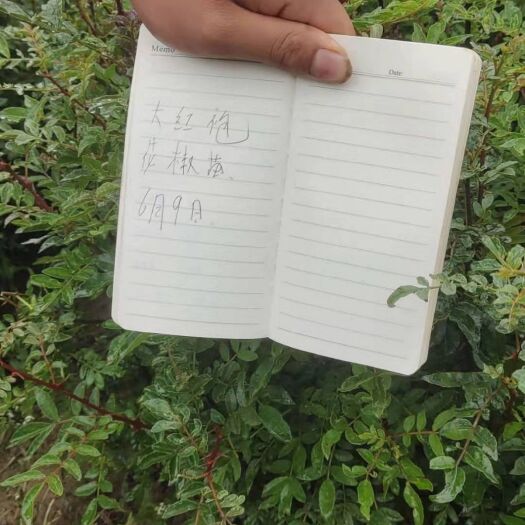 Memo
Date
大红袍
花椒苗
6月9日